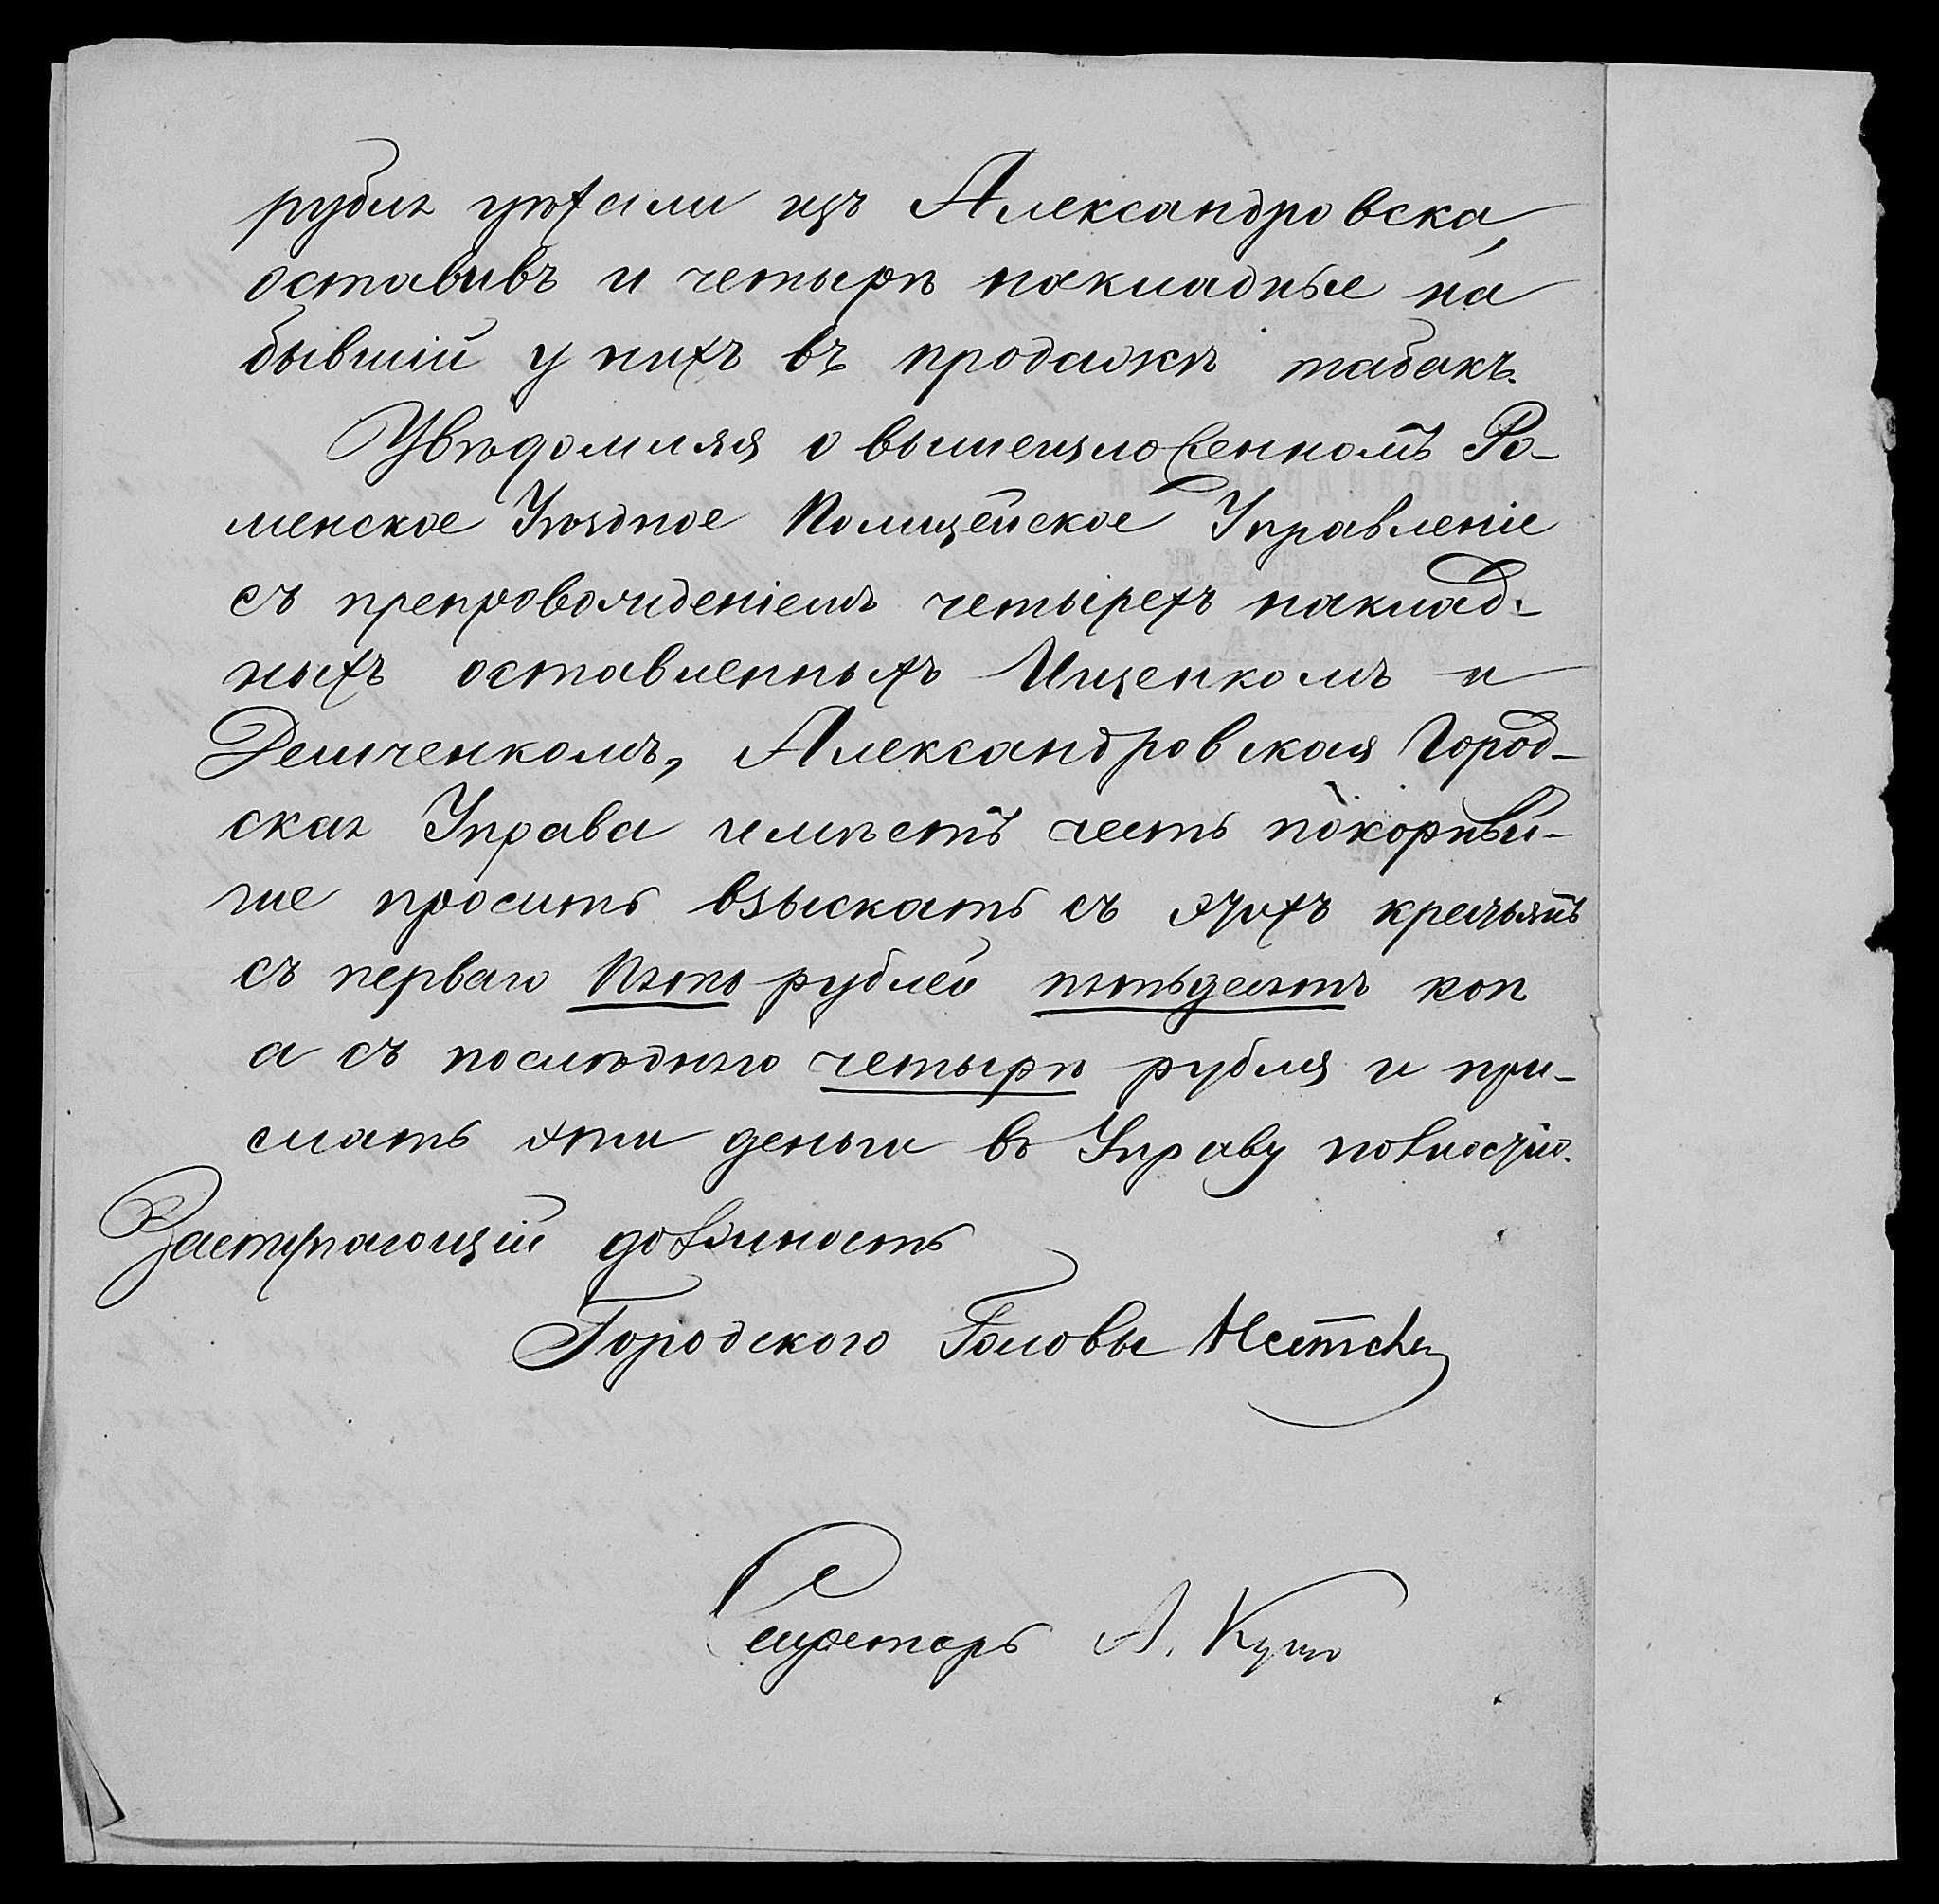 рубля уѣхали изъ Александровска,
оставивъ и четырѣ накладные на
бывшій у нихъ въ продажѣ табакъ.
Увѣдомляя о вышеизложенномъ Ро-
менское Уѣздное Полицейское Управленіе
съ препровожденіемъ четырехъ наклад-
ныхъ оставленныхъ Ищенкомъ и
Демченкомъ, Александровская Город-
ская Управа имѣетъ честь покорнѣй-
ше просить взыскать съ этихъ крестьянъ
съ перваго Пять рублей пятьдесятъ коп
а съ послѣдняго четырѣ рубля и при-
слать эти деньги въ Управу полностію.
Заступающій должность
Городского Головы
Секретарь А.